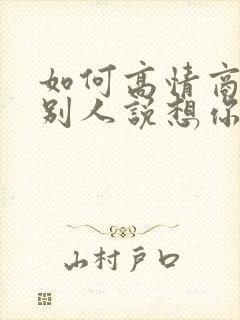 如何高情商
别人说想你
山村户口